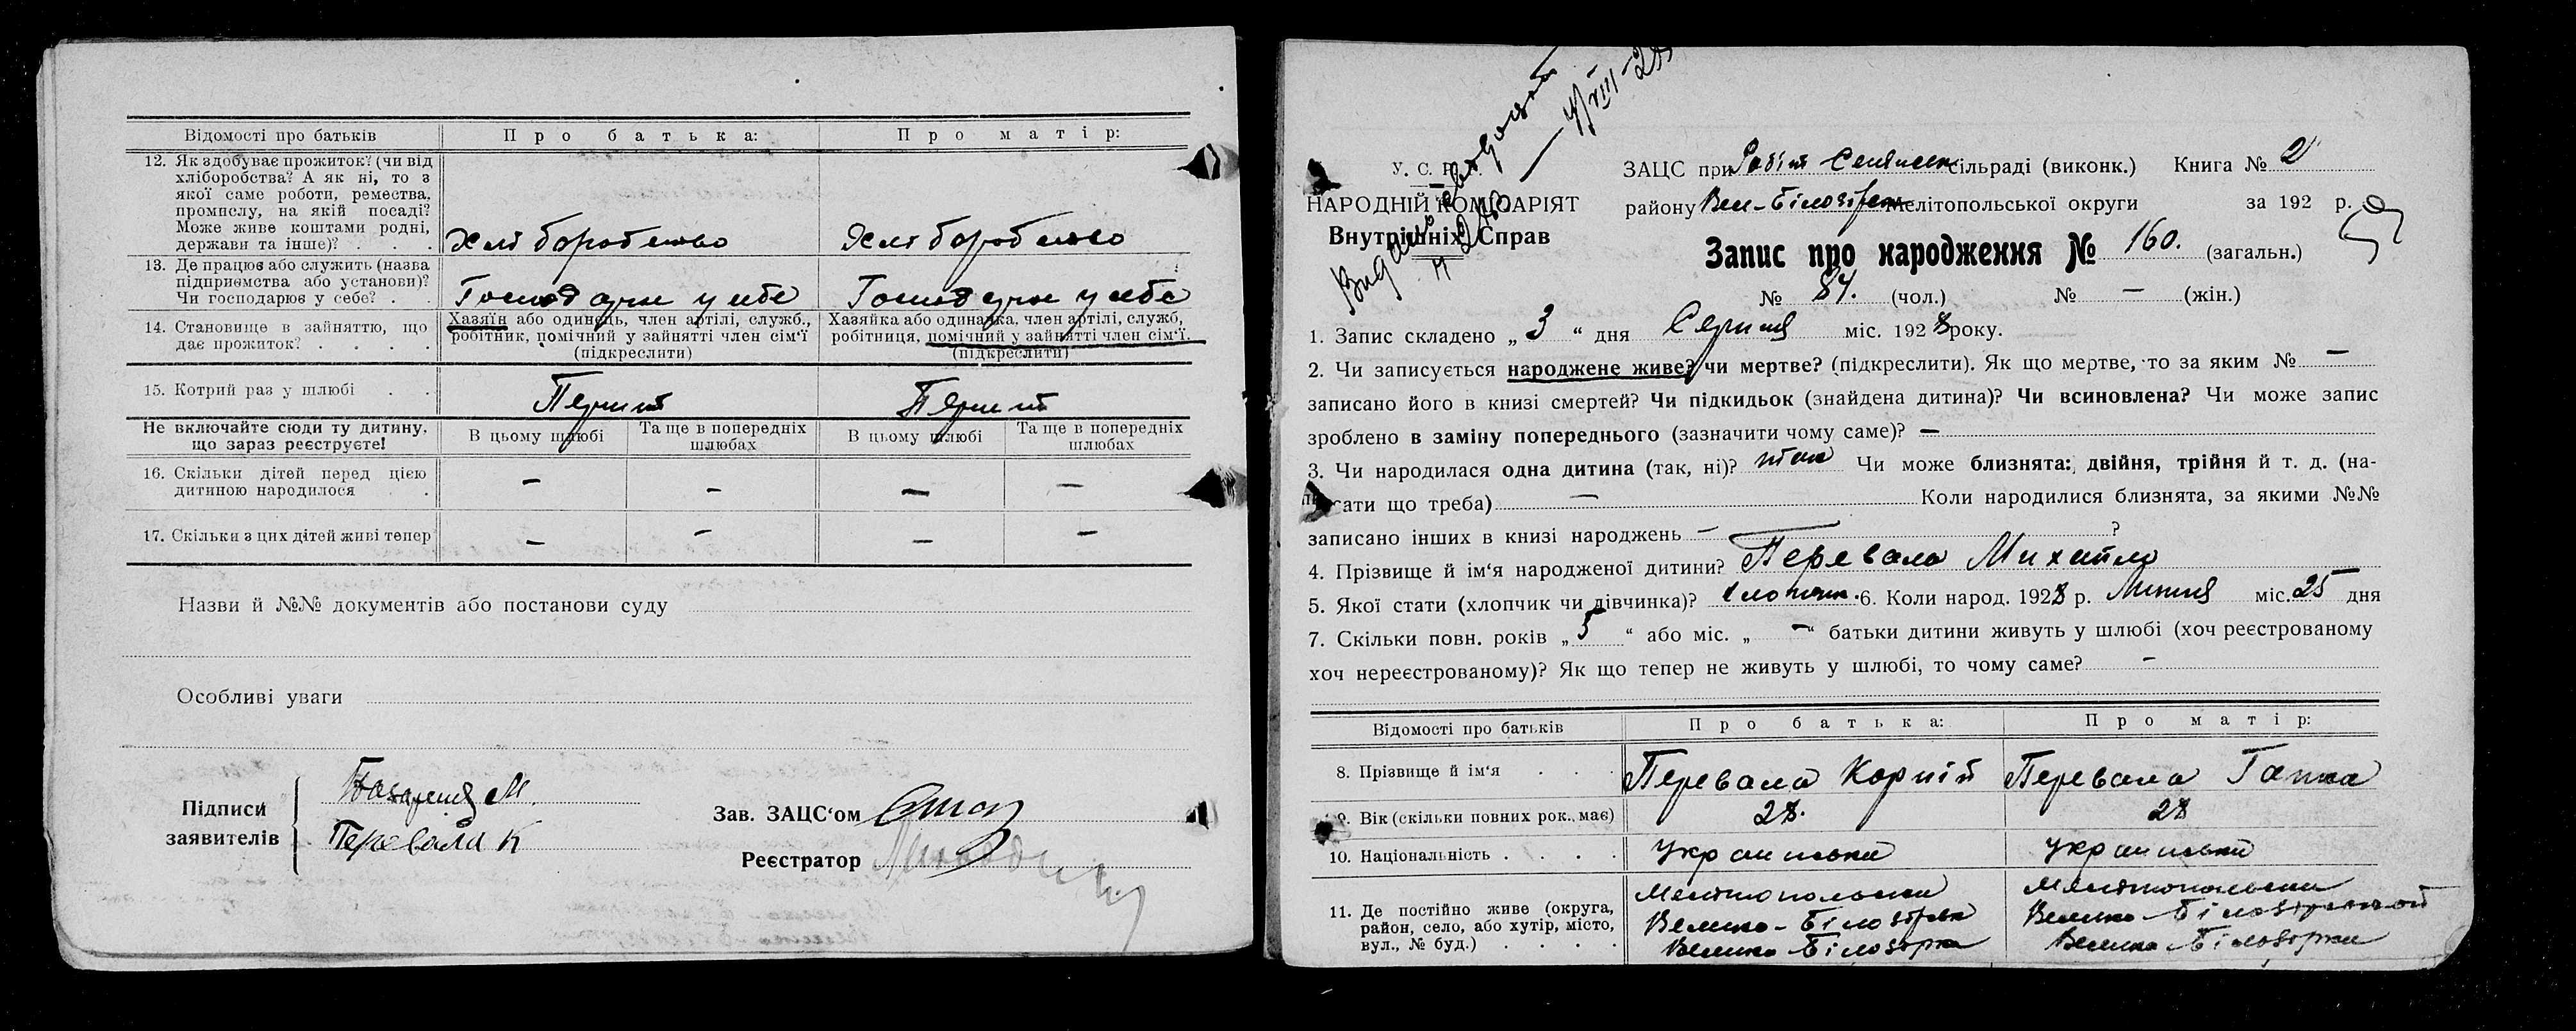 Відомості про батьків
Про батька:
Про матір:
12. Як здобуває прожиток? (чи від
хліборобства? А як ні, то з
якої саме роботи, ремества,
промислу, на якій посаді?
Може живе коштами родні,
держави та інше)? . . .
Хліборобство
Хліборобство
13. Де працює або служить (назва
підприємства або установи)?
Чи господарює у себе? . .
Господарює у себе
Господарює у себе
14. Становище в зайняттю, що
дає прожиток? . . . .
Хазяїн або одинець, член артілі, служб.,
робітник, помічний у зайнятті член сім'ї
(підкреслити)
Хазяйка або одиначка, член артілі, служб,
робітниця, помічний у зайнятті член сім'ї.
(підкреслити)
15. Котрий раз у шлюбі . .
Перший
Перший
Не включайте сюди ту дитину,
що зараз реєструєте!
В цьому шлюбі
Та ще в попередніх
шлюбах
В цьому шлюбі
Та ще в попередніх
шлюбах
16. Скільки дітей перед цією
дитиною народилося . .
— — — —
17. Скільки з цих дітей живі тепер
— — — —
Назви й №№ документів або постанови суду
Особливі уваги
Підписи
заявителів
М.
Перевала К
Зав. ЗАЦС'ом
Реєстратор
У. С. Р. Р.
НАРОДНІЙ КОМІСАРІЯТ
Внутрішніх Справ
— 4/VIII-28
ЗАЦС при сільраді (виконк.) Книга № 2
району Вел-Білозірськ Мелітопольської округи за 192 р.
Запис про народження № 160. (загальн.)
№ 84. (чол.) № — (жін.)
1. Запис складено „ 3 “ дня Серпня міс. 1928 року.
2. Чи записується народжене живе? чи мертве? (підкреслити). Як що мертве, то за яким № —
записано його в книзі смертей? Чи підкидьок (знайдена дитина)? Чи всиновлена? Чи може запис
зроблено в заміну попереднього (зазначити чому саме)? —
3. Чи народилася одна дитина (так, ні)? так Чи може близнята: двійня, трійня й т. д. (на-
писати що треба) — Коли народилися близнята, за якими №№
записано інших в книзі народжень — ?
4. Прізвище й ім'я народженої дитини? Перевала Михайло
5. Якої стати (хлопчик чи дівчинка)? хлопчик. 6. Коли народ. 1928 р. Липня міс. 25 дня
7. Скільки повн. років „ 5 “ або міс. „ — “ батьки дитини живуть у шлюбі (хоч реєстрованому
хоч нереєстрованому)? Як що тепер не живуть у шлюбі, то чому саме? —
Відомості про батьків
Про батька:
Про матір:
8. Прізвище й ім'я . . .
Перевала Корній
Перевала Гапка
9. Вік (скільки повних рок., має)
28.
28
10. Національність . . . .
Українська
Українська
11. Де постійно живе (округа,
район, село, або хутір, місто,
вул., № буд.) . . . .
Мелітопольська
Велико-Білозірськ
Велика-Білозірка
Мелітопольська
Велико-Білозірський
Велика-Білозірка